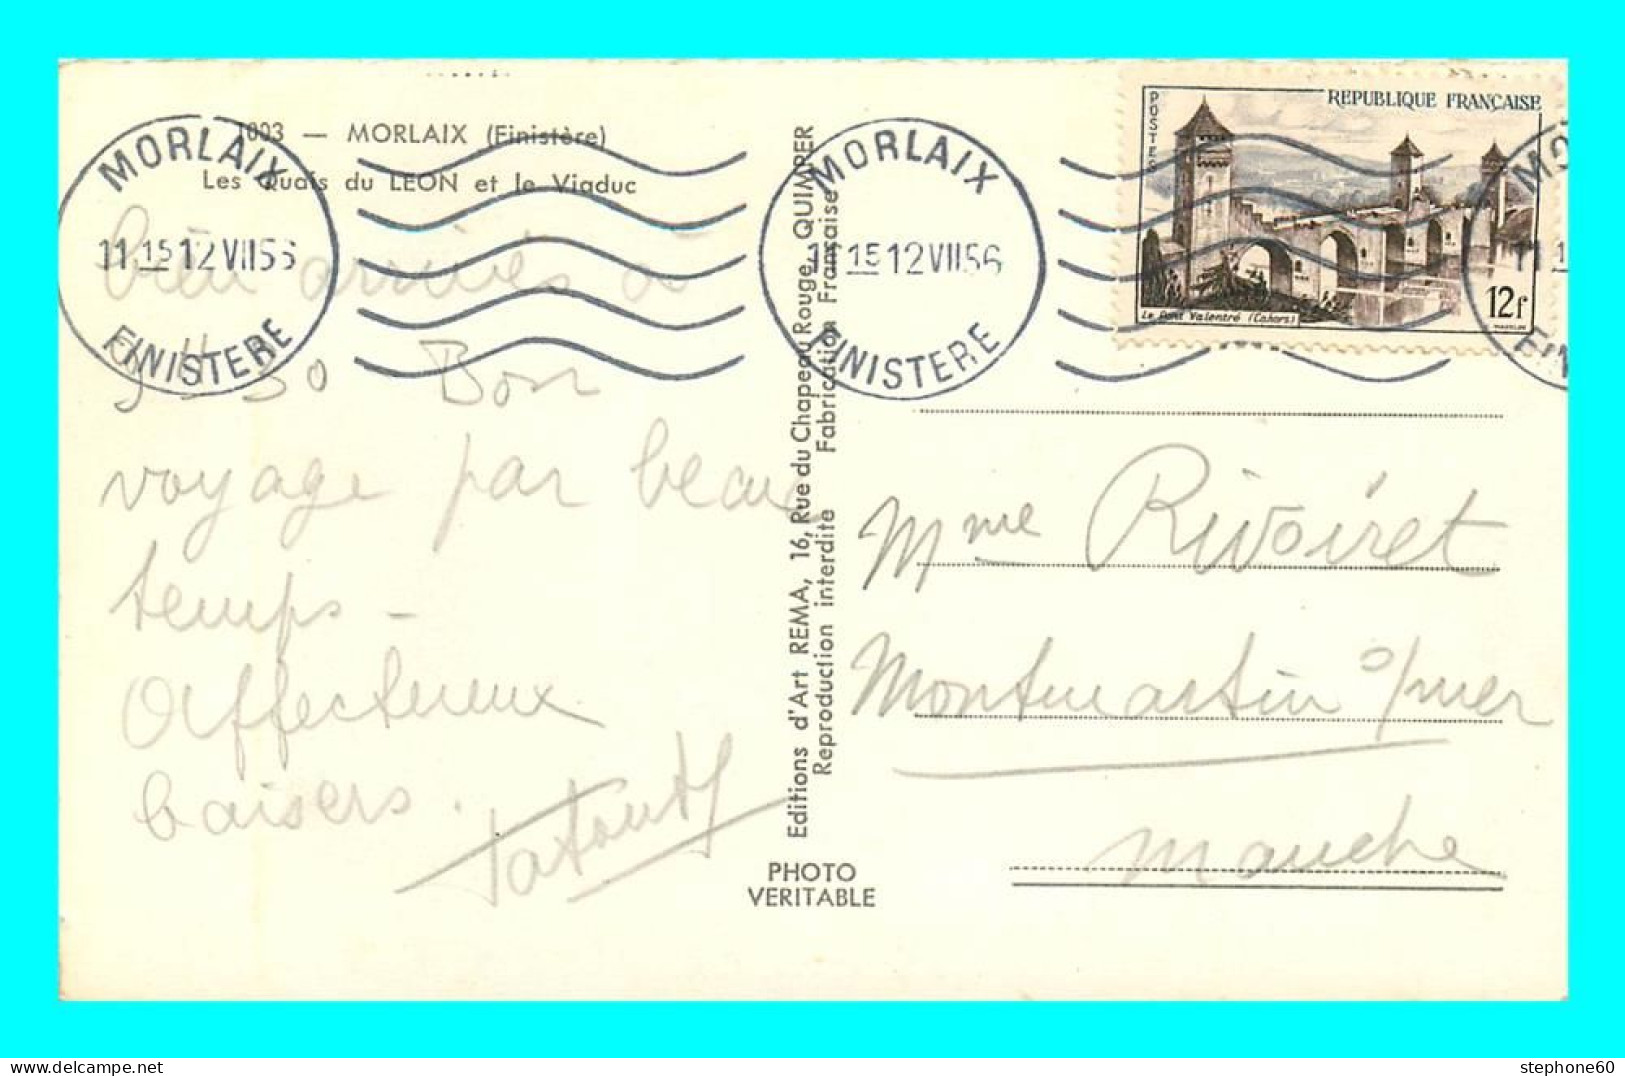 1003 — MORLAIX (Finistère)
Les Quais du LEON et le Viaduc
MORLAIX
11 15 12 VII 56
FINISTERE
MORLAIX
11 15 12 VII 56
FINISTERE
POSTES
REPUBLIQUE FRANÇAISE
Le Pont Valentré (Cahors)
12f
MO
11 1
FIN
bien arrivés à
9 H 30 Bon
voyage par beau
temps -
Affectueux
baisers.
Tatout
Editions d'Art REMA, 16, Rue du Chapeau Rouge, QUIMPER
Reproduction interdite Fabrication Française
PHOTO
VERITABLE
Mme Rivoiret
Montmartin s/mer
Manche
stephone60